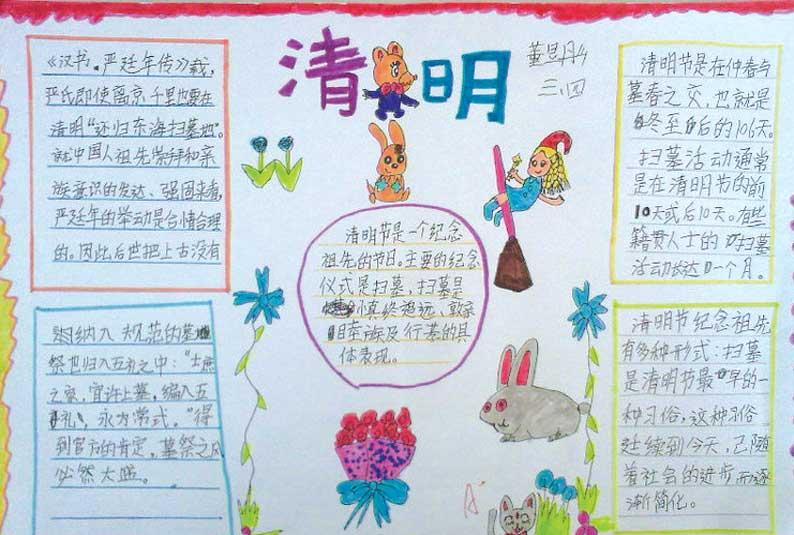 清明
三.四
《汉书.严廷年传》载,
严氏即使离京千里也要在
清明"还归东海扫墓地"。
就中国人祖先崇拜和亲
族意识的发达、强固来看,
严廷年的举动是合情合理
的。因此后世把上古没有
纳入 规范的墓
祭也归入五礼之中:"士庶
之家,宜许上墓,编入五
礼,永为常式。"得
到官方的肯定,墓祭之风
必然大盛。
清明节是一个纪念
祖先的节日。主要的纪念
仪式是扫墓,扫墓是
慎终追远、敦亲
睦族及行
体表现。
清明节是在仲春与
暮春之交,也就是
冬至后的106天。
扫墓活动通常
是在清明节的前
10天或后10天。有些
籍贯人士的扫墓
活动长达一个月。
清明节纪念祖先
有多种形式:扫墓
是清明节最早的一
种习俗,这种习俗
延续到今天,已随
着社会的进步而逐
渐简化。